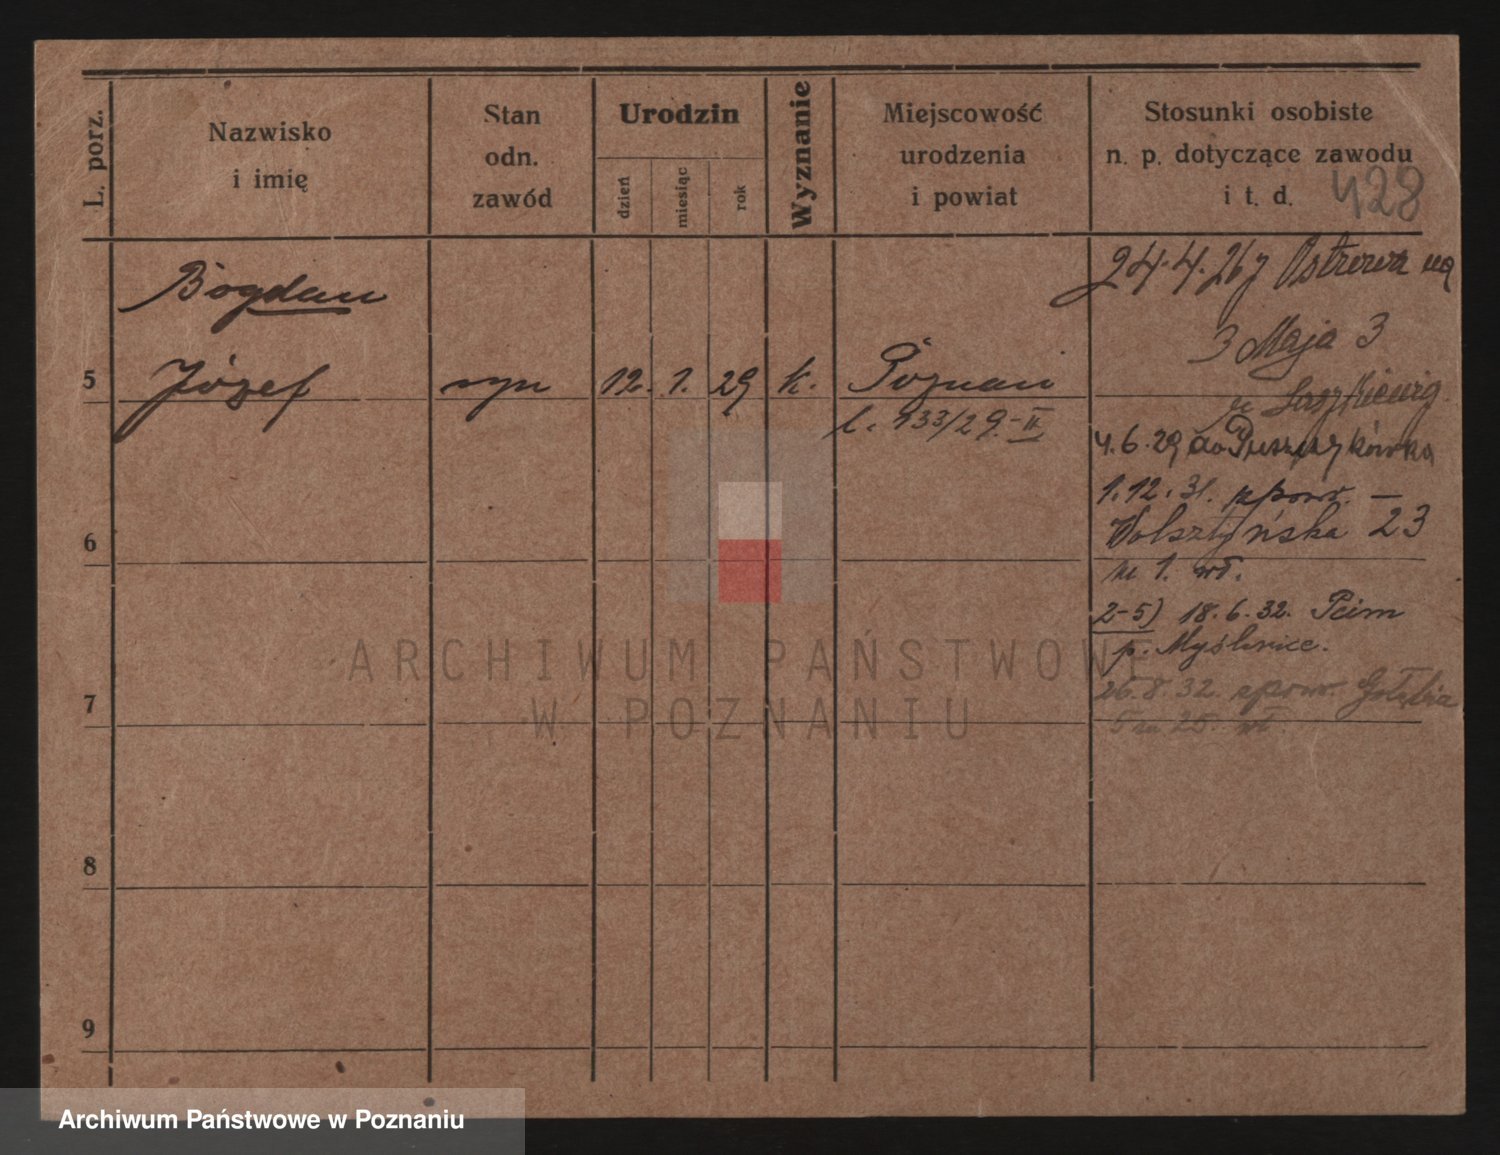 L. porz.
Nazwisko
i imię
Stan
odn.
zawód
Urodzin
dzień
miesiąc
rok
Wyznanie
Miejscowość
urodzenia
i powiat
Stosunki osobiste
n. p. dotyczące zawodu
i t. d.
428
Bogdan
5 Józef syn 12. 1. 29 k. Poznań
l. 133/29.-II
24.4.26 z Ostrowa na
3 Maja 3
4.6.29 do Puszczykówka
1.12.31. z pow. –
Wolsztyńska 23
m 1. wł.
2-5) 18.6.32. Pcim
p. Myślenice.
26.8.32. z pow. Gołębia
5 m 25. wł.
6
7
8
9
ARCHIWUM PAŃSTWOWE
W POZNANIU
Archiwum Państwowe w Poznaniu